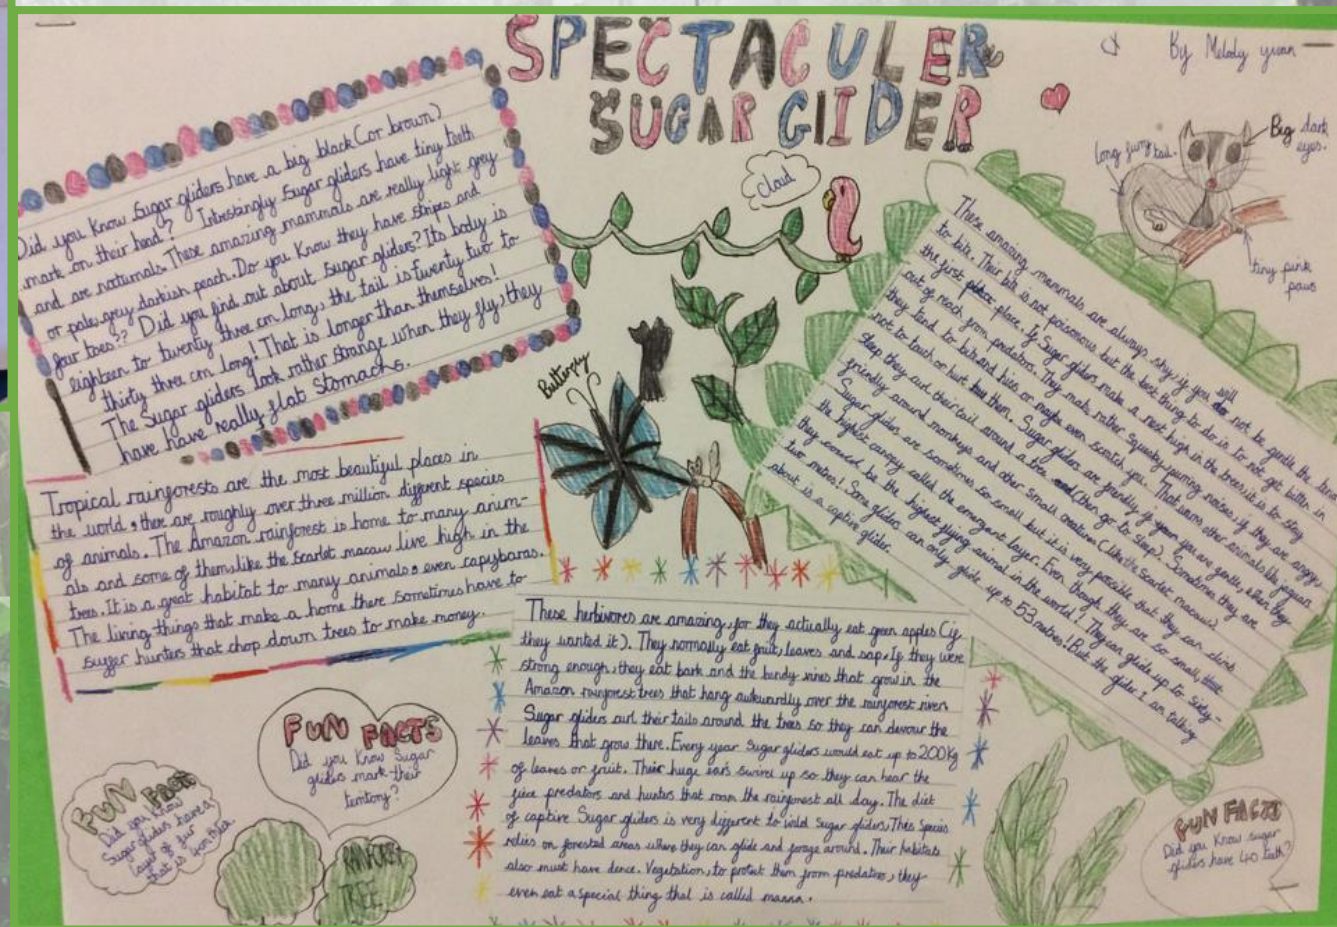 SPECTACULER
SUGAR GLIDER
By Melody yuan
Did you know Sugar gliders have a big black (or brown)
mark on their head? Intrestingly Sugar gliders have tiny teeth
and are noturnals. These amazing mammals are really light grey
or pale grey darkish peach. Do you know they have stripes and
four toes?? Did you find out about Sugar gliders? Its body is
eighteen to twenty three cm long, the tail is twenty two to
thirty three cm long! That is longer than themselves!
The Sugar gliders look rather strange when they fly, they
have have really flat stomachs.
cloud
Butterfly
long furry tail.
Big dark
eyes.
tiny pink
paws
These amazing mammals are always shy; if you will
not be gentle the
to bite. Their bit is not poisonous but the best thing to do is to not get bitten in
the first place. If Sugar gliders make a nest high in the trees it is to stay
out of reach from predators. They make rather squeaky purring noises, if they are angry
they tend to bite and hiss or maybe even scratch you. That warns other animals like jaguars
not to touch or hurt them. Sugar gliders are friendly if you are gentle, when they
sleep they curl their tail around a tree (then go to sleep). Sometimes they are
friendly around monkeys and other small creatures (like the scarlet macaw)
Sugar gliders are sometimes so small but it is very possible that they can climb
the highest canopy called the emergent layer. Even though they are so small, that
they be the highest flying animal in the world! They can glide up to sixty-
two metres! Some gliders can only glide up to 53 metres! But the glider I am talking
about is a captive glider.
Tropical rainforests are the most beautiful places in
the world, there are roughly over three million different species
of animals. The Amazon rainforest is home to many anim-
als and some of them like the scarlet macaw live high in the
trees. It is a great habitat to many animals, even capybaras.
The living things that make a home there sometimes have to
suffer hunters that chop down trees to make money.
These herbivores are amazing, for they actually eat green apples (if
they wanted it). They normally eat fruit, leaves and sap. If they were
strong enough, they eat bark and the bendy vines that grow in the
Amazon rainforest trees that hang awkwardly over the rainforest river.
Sugar gliders curl their tails around the trees so they can devour the
leaves that grow there. Every year Sugar gliders would eat up to 200kg
of leaves or fruit. Their huge ears swirel up so they can hear the
predators and hunters that roam the rainforest all day. The diet
of captive Sugar gliders is very different to wild Sugar gliders. This Species
relies on forested areas where they can glide and forage around. Their habitats
also must have dence. Vegetation, to protect them from predators, they
even eat a special thing that is called manna.
FUN FACTS
Did you know Sugar
gliders mark their
territory?
FUN FACTS
Did you know
Sugar gliders have a
layer of fur
that is
RAINFOREST
TREE
FUN FACTS
Did you know sugar
gliders have 40 teeth?